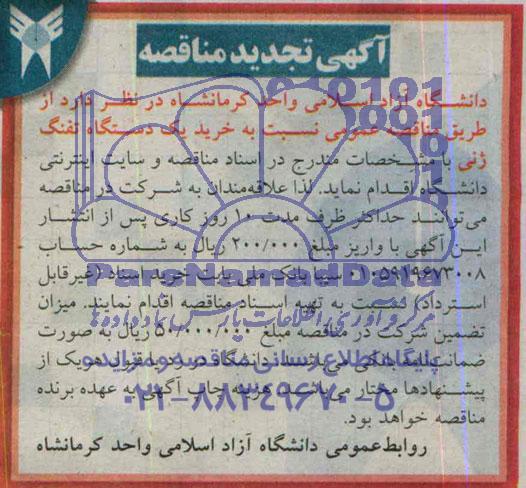 آگهی تجدید مناقصه
دانشگاه آزاد اسلامی واحد کرمانشاه در نظر دارد از
طریق مناقصه عمومی نسبت به خرید یک دستگاه تفنگ
ژنی با مشخصات مندرج در اسناد مناقصه و سایت اینترنتی
دانشگاه اقدام نماید. لذا علاقه‌مندان به شرکت در مناقصه
می‌توانند حداکثر ظرف مدت ۱۰ روز کاری پس از انتشار
این آگهی با واریز مبلغ ۲۰۰/۰۰۰ ریال به شماره حساب
۰۱۰۵۹۱۹۶۷۳۰۰۸ سیبا بانک ملی بابت خرید اسناد (غیرقابل
استرداد) نسبت به تهیه اسناد مناقصه اقدام نمایند. میزان
تضمین شرکت در مناقصه مبلغ ۵۰/۰۰۰/۰۰۰ ریال به صورت
ضمانتنامه بانکی می‌باشد. دانشگاه در رد یا قبول هر یک از
پیشنهادها مختار می‌باشد. هزینه چاپ آگهی به عهده برنده
مناقصه خواهد بود.
روابط عمومی دانشگاه آزاد اسلامی واحد کرمانشاه
ParsNamadData
مرکز فرآوری اطلاعات پارس نماد داده ها
پایگاه اطلاع رسانی مناقصه و مزایده
۰۲۱-۸۸۳۴۹۶۷۰-۵